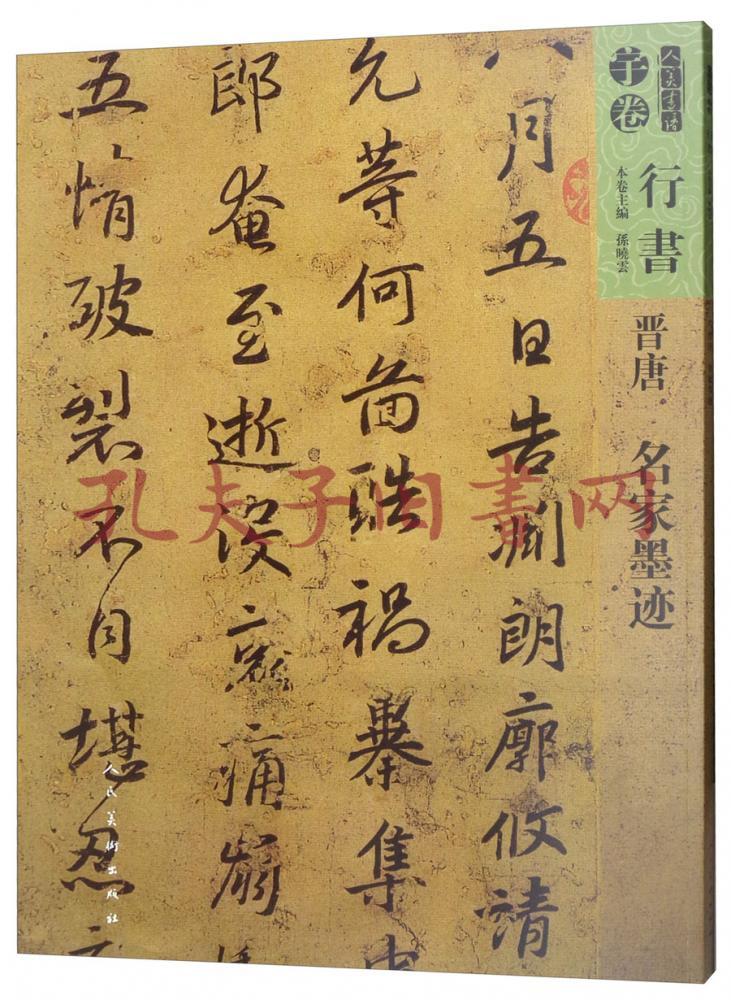 人美書譜
羊卷
行書
本卷主編 孫曉雲
晋唐 名家墨迹
八月五日告淵朗廓攸靖
允等何啚酷禍暴集中
郎奄至逝没哀痛崩
五情破裂不自堪忍
人民美術出版社
孔夫子旧書网